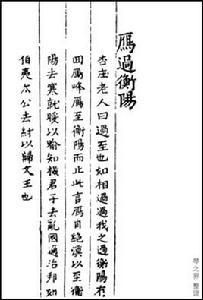 鴈過衡陽
杏庄老人曰過至也如相過過我之過衡陽有
回鴈峰鴈至衡陽而止此言鴈自絶漠以至衡
陽去寒就暖以喻知機君子去亂國適治邦如
伯夷公去紂以歸文王也
琴之界
整理